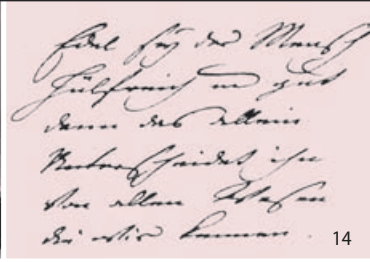 Edel sey der Mensch
Hülfreich u gut
denn das allein
Unterscheidet ihn
Von allen Wesen
die wir kennen.
14